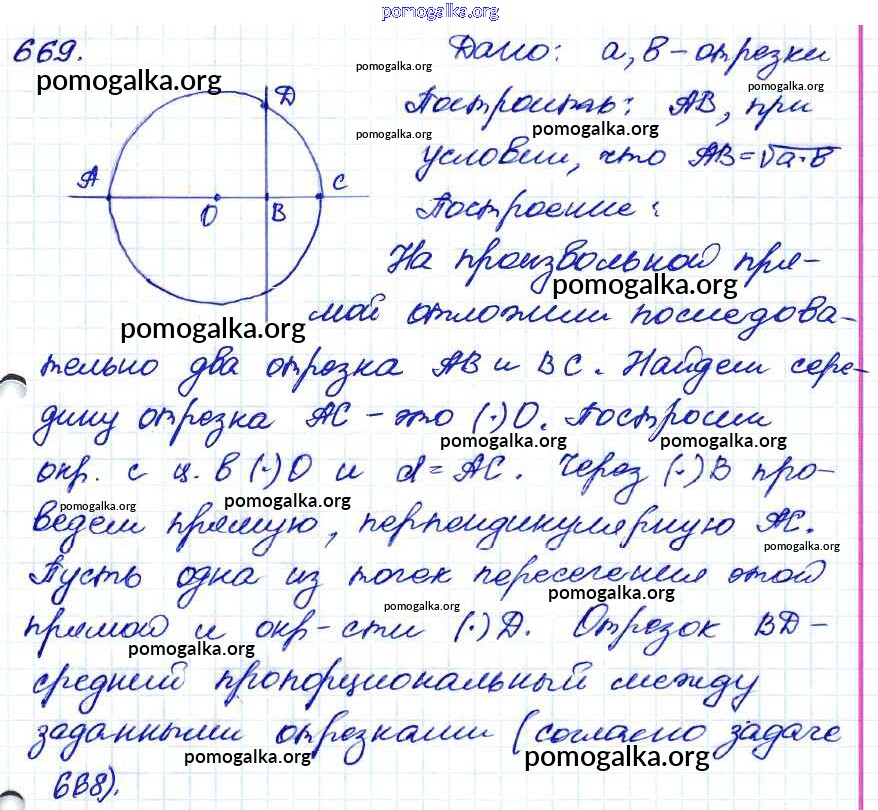 pomogalka.org
669.
Дано: a, b – отрезки
pomogalka.org
pomogalka.org
D
Построить: AB, при
pomogalka.org
pomogalka.org
условии, что AB=√a·b
A
C
O
B
Построение:
На произвольной пря-
pomogalka.org
pomogalka.org
мой отложим последова-
тельно два отрезка AB и BC. Найдем сере-
дину отрезка AC – это (·)O. Построим
pomogalka.org
pomogalka.org
окр. с ц. в (·)O и d=AC. Через (·)B про-
pomogalka.org
pomogalka.org
ведем прямую, перпендикулярную AC.
pomogalka.org
Пусть одна из точек пересечения этой
pomogalka.org
pomogalka.org
прямой и окр-сти (·)D. Отрезок BD –
pomogalka.org
средний пропорциональный между
заданными отрезками (согласно задаче
pomogalka.org
pomogalka.org
668).